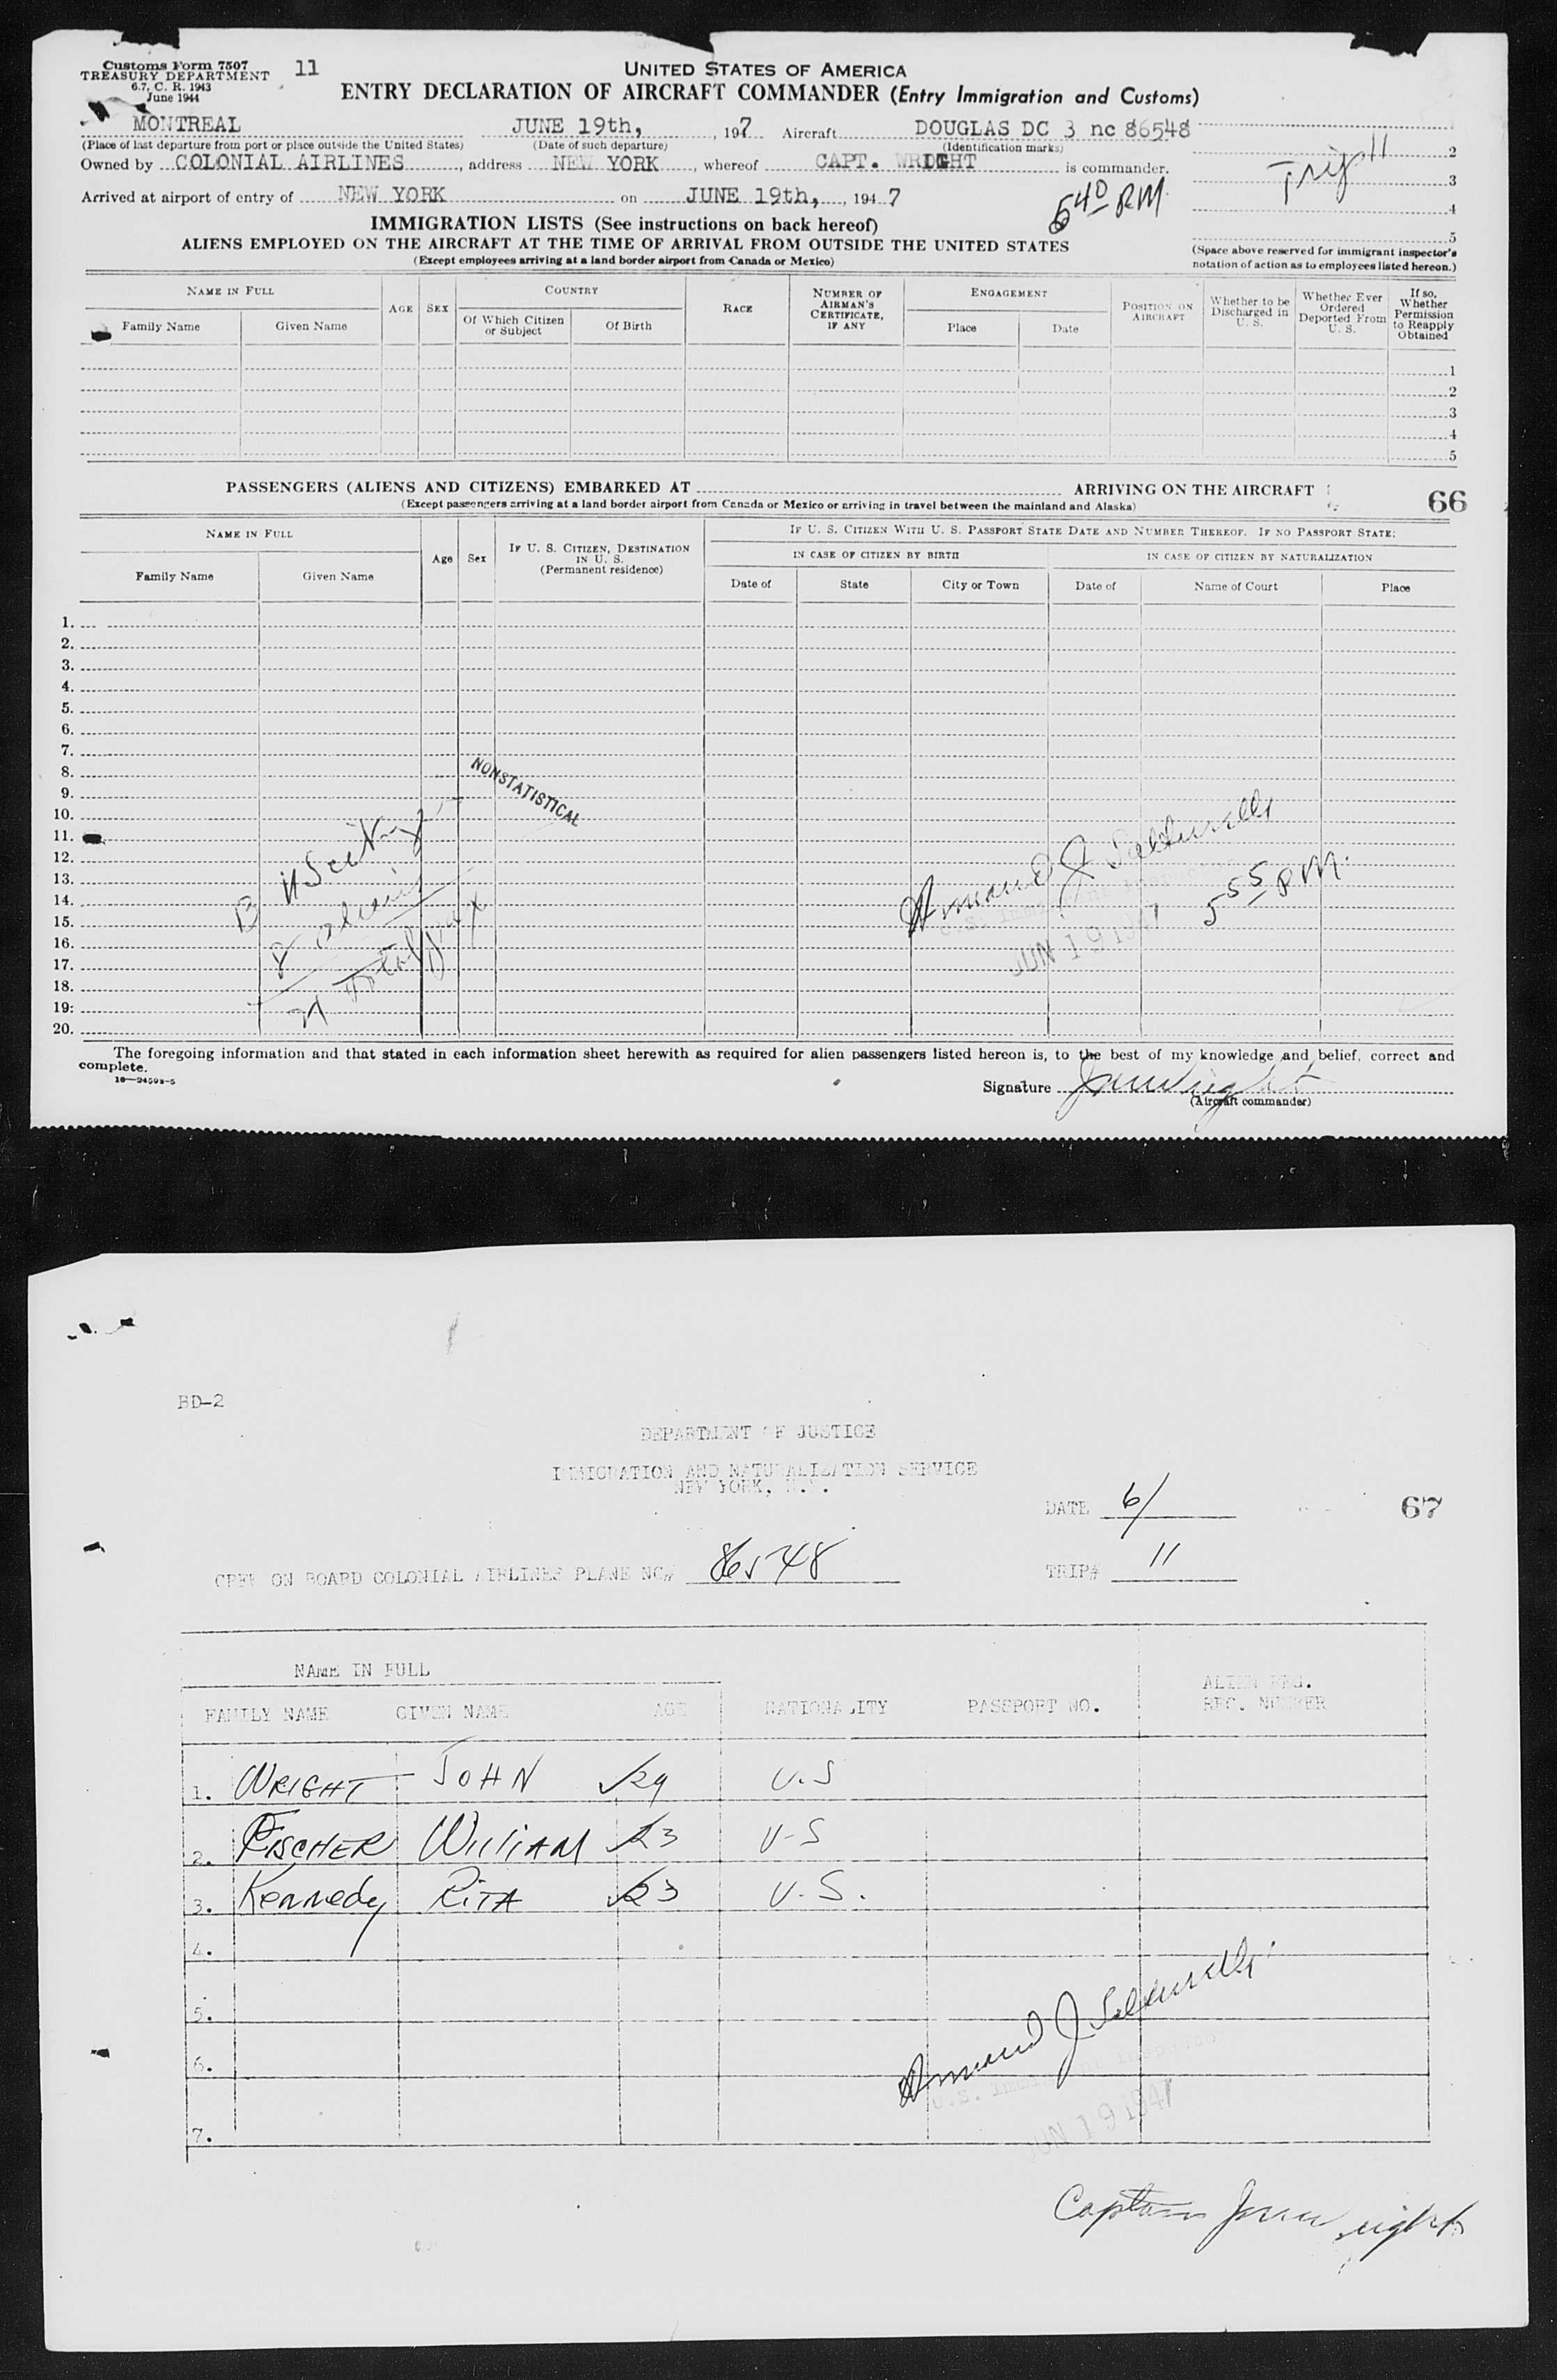 Customs Form 7507
TREASURY DEPARTMENT
6.7, C. R. 1943
June 1944
11
UNITED STATES OF AMERICA
ENTRY DECLARATION OF AIRCRAFT COMMANDER (Entry Immigration and Customs)
MONTREAL JUNE 19th, , 1947 Aircraft DOUGLAS DC 3 nc 86548
(Place of last departure from port or place outside the United States) (Date of such departure) (Identification marks)
Owned by COLONIAL AIRLINES, address NEW YORK, whereof CAPT. WRIGHT is commander.
Arrived at airport of entry of NEW YORK on JUNE 19th, , 1947
5 40 P.M.
Trip 11
2
3
4
5
(Space above reserved for immigrant inspector's
notation of action as to employees listed hereon.)
IMMIGRATION LISTS (See instructions on back hereof)
ALIENS EMPLOYED ON THE AIRCRAFT AT THE TIME OF ARRIVAL FROM OUTSIDE THE UNITED STATES
(Except employees arriving at a land border airport from Canada or Mexico)
NAME IN FULL
Family Name Given Name
AGE SEX
COUNTRY
Of Which Citizen or Subject
Of Birth
RACE
NUMBER OF AIRMAN'S CERTIFICATE, IF ANY
ENGAGEMENT
Place Date
POSITION ON AIRCRAFT
Whether to be Discharged in U. S.
Whether Ever Ordered Deported From U. S.
If so, Whether Permission to Reapply Obtained
1
2
3
4
5
PASSENGERS (ALIENS AND CITIZENS) EMBARKED AT ARRIVING ON THE AIRCRAFT
66
(Except passengers arriving at a land border airport from Canada or Mexico or arriving in travel between the mainland and Alaska)
NAME IN FULL
Family Name Given Name
Age Sex
IF U. S. CITIZEN, DESTINATION IN U. S.
(Permanent residence)
IF U. S. CITIZEN WITH U. S. PASSPORT STATE DATE AND NUMBER THEREOF. IF NO PASSPORT STATE:
IN CASE OF CITIZEN BY BIRTH IN CASE OF CITIZEN BY NATURALIZATION
Date of State City or Town Date of Name of Court Place
1.
2.
3.
4.
5.
6.
7.
8.
9.
10.
11.
12.
13.
14.
15.
16.
17.
18.
19.
20.
NONSTATISTICAL
Armand J.
U.S. Immigrant Inspector
JUN 19 1947
5 55 P.M.
The foregoing information and that stated in each information sheet herewith as required for alien passengers listed hereon is, to the best of my knowledge and belief, correct and
complete.
16—24598-5
Signature J Wright
(Aircraft commander)
BD-2
DEPARTMENT OF JUSTICE
IMMIGRATION AND NATURALIZATION SERVICE
NEW YORK, N.Y.
DATE 6/
67
CREW ON BOARD COLONIAL AIRLINES PLANE NC# 86548
TRIP# 11
NAME IN FULL
FAMILY NAME GIVEN NAME AGE NATIONALITY PASSPORT NO. ALIEN REG. REC. NUMBER
1. WRIGHT JOHN 29 U.S
2. FISCHER WILLIAM 23 U-S
3. Kennedy RITA 23 U.S.
4.
5.
6.
7.
Armand J.
U.S. Immigrant Inspector
JUN 19 1947
Captain